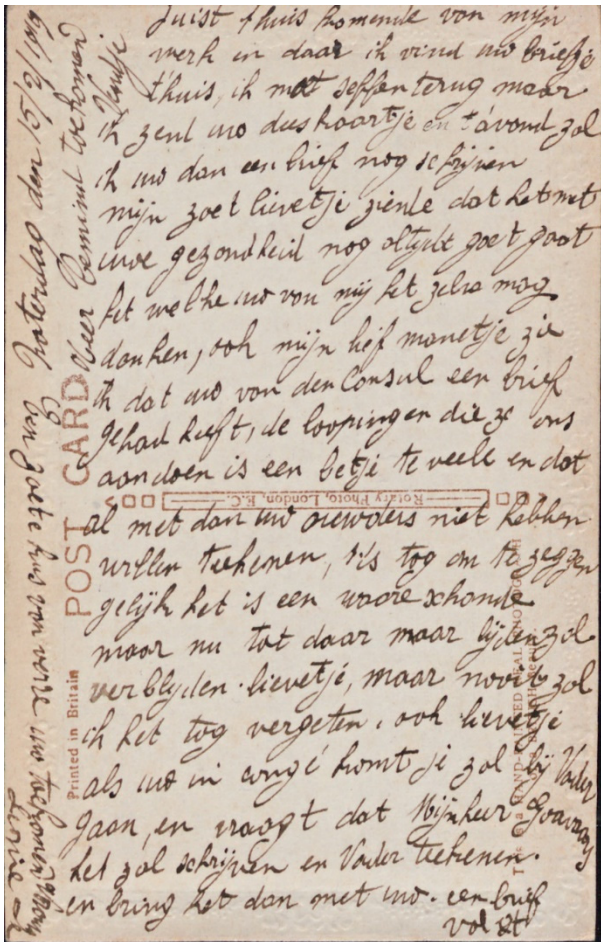 Zaterdag den 15/9/1917
Zeer Bemind toekomend
Ventje
Juist thuis komende van mijn
werk en daar ik vind uw briefje
thuis, ik moet seffen terug maar
ik zend uw dees kaartje en t'avond zal
ik uw dan een brief nog schrijven
mijn zoet lievetje ziende dat het met
uwe gezondheid nog altijdt goet gaat
het welke uw van mij het zelve mag
danken, ook mijn lief manetje zie
ik dat uw van den Consul een brief
gehad heeft, de loopingen die ze ons
aandoen is een betje te veele en dat
al met dan uw ouwders niet hebben
willen teekenen, t'is tog om te zeggen
gelijk het is een waare schande
maar nu tot daar maar lijden zal
verblyden lievetje, maar nooit zal
ik het tog vergeten, ook lievetje
als uw in congé komt je zal bij Vader
gaan, en vraagt dat Mijnheer
het zal schrijven en Vader teekenen.
en bring het dan met uw. een brief
volgt
een goete kus van verre uw toekomend
POST CARD
Printed in Britain
Rotary Photo, London, E.C.